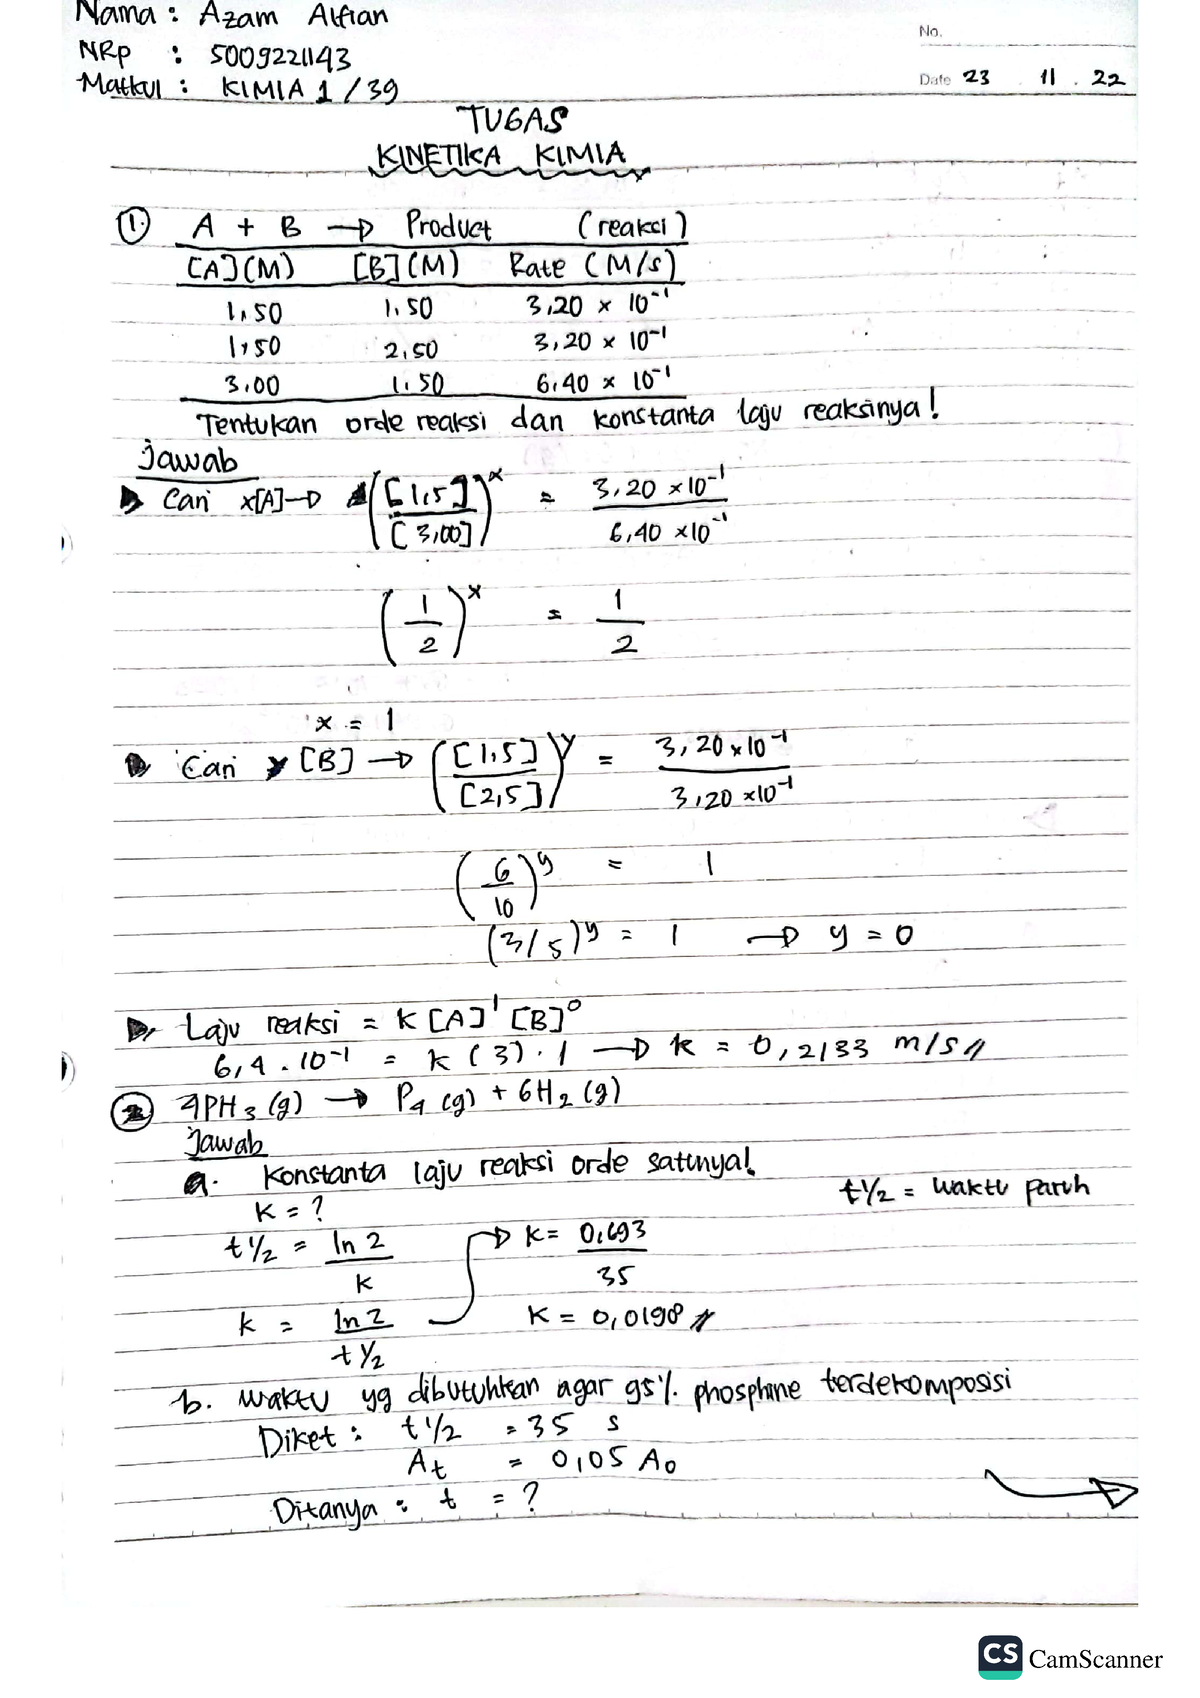 Nama : Azam Alfian
NRP : 5009221143
Matkul : KIMIA 1 / 39
No.
Date 23 . 11 . 22
TUGAS
KINETIKA KIMIA
1. A + B → Product (reaksi)
[A](M) [B](M) Rate (M/s)
1,50 1,50 3,20 x 10⁻¹
1,50 2,50 3,20 x 10⁻¹
3,00 1,50 6,40 x 10⁻¹
Tentukan orde reaksi dan konstanta laju reaksinya!
Jawab
Cari x[A] → ([1,5]/[3,00])ˣ = 3,20 x 10⁻¹ / 6,40 x 10⁻¹
(1/2)ˣ = 1/2
x = 1
Cari y [B] → ([1,5]/[2,5])ʸ = 3,20 x 10⁻¹ / 3,20 x 10⁻¹
(6/10)ʸ = 1
(3/5)ʸ = 1 → y = 0
Laju reaksi = K [A]¹ [B]⁰
6,4 . 10⁻¹ = k (3) . 1 → k = 0,2133 m/s //
2 4PH₃ (g) → P₄ (g) + 6H₂ (g)
Jawab
a. Konstanta laju reaksi orde satunya!
K = ? t½ = waktu paruh
t½ = ln 2 / k → k = 0,693 / 35
k = ln 2 / t½ K = 0,0198 //
b. waktu yg dibutuhkan agar 95% phosphine terdekomposisi
Diket : t½ = 35 s
At = 0,05 A₀
Ditanya : t = ?
CS CamScanner